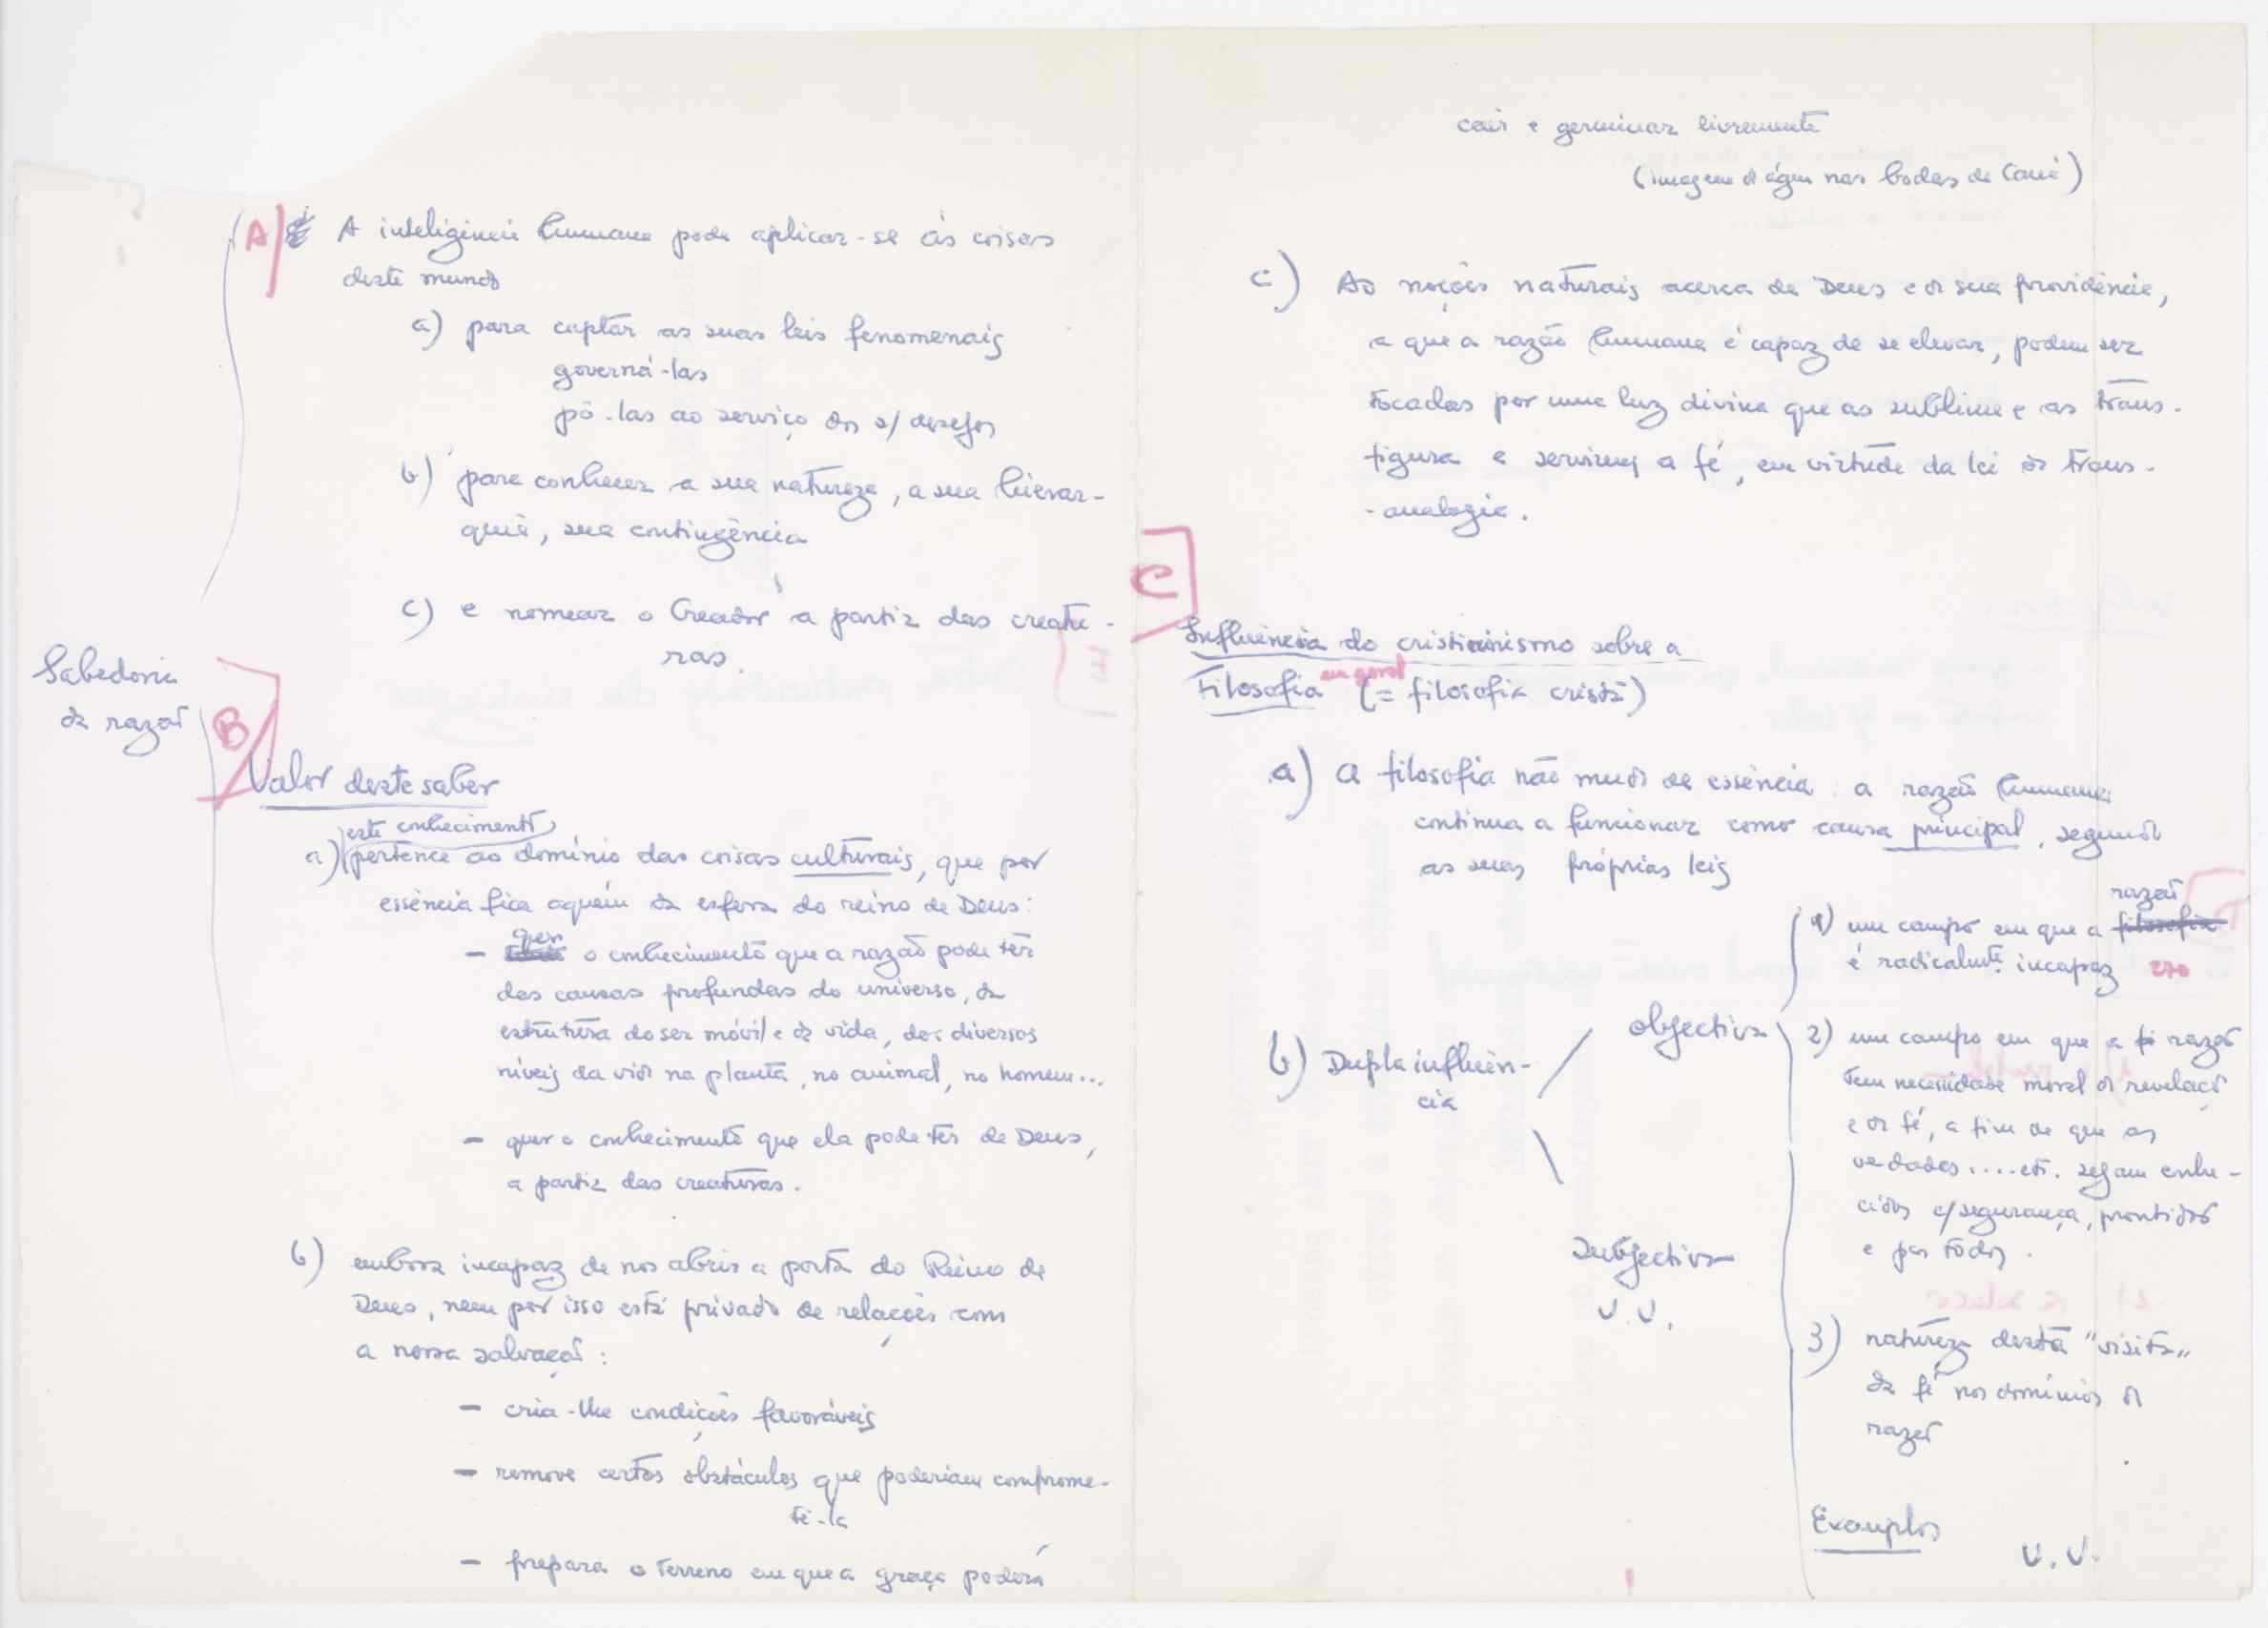 A
A inteligência humana pode aplicar-se às coisas
deste mundo
a) para captar as suas leis fenomenais
governá-las
pô-las ao serviço dos s/ desejos
b) para conhecer a sua natureza, a sua hierar-
quia, sua contingência
c) e nomear o Creador a partir das creatu-
ras.
Sabedoria
da razão
B
Valor deste saber
este conhecimento
a) pertence ao domínio das coisas culturais, que por
essência fica aquém da esfera do reino de Deus:
quer
- o conhecimento que a razão pode ter
das causas profundas do universo, da
estrutura do ser móvil e da vida, dos diversos
níveis da vida na planta, no animal, no homem...
- quer o conhecimento que ela pode ter de Deus,
a partir das creaturas.
b) embora incapaz de nos abrir a porta do Reino de
Deus, nem por isso está privado de relações com
a nossa salvação:
- cria-lhe condições favoráveis
- remove certos obstáculos que poderiam comprome-
tê-la
- prepara o terreno em que a graça poderá
cair e germinar livremente
(imagem da água nas bodas de Caná)
c) As noções naturais acerca de Deus e da sua providência,
a que a razão humana é capaz de se elevar, podem ser
tocadas por uma luz divina que as sublime e as trans-
figura e servirem a fé, em virtude da lei da trans-
-analogia.
C
Influência do cristianismo sobre a
em geral
Filosofia (= filosofia cristã)
a) A filosofia não muda de essência: a razão humana
continua a funcionar como causa principal, segundo
as suas próprias leis
b) Dupla influên-
cia
objectiva
razão
1) um campo em que a filosofia
é radicalmte. incapaz
2) um campo em que a fi razão
tem necessidade moral da revelação
e da fé, a fim de que as
verdades .... etc. sejam conhe-
cidas c/ segurança, prontidão
e por todos.
3) natureza desta "visita"
da fé nos domínios da
razão
Exemplos
V. V.
Subjectiva
V. V.